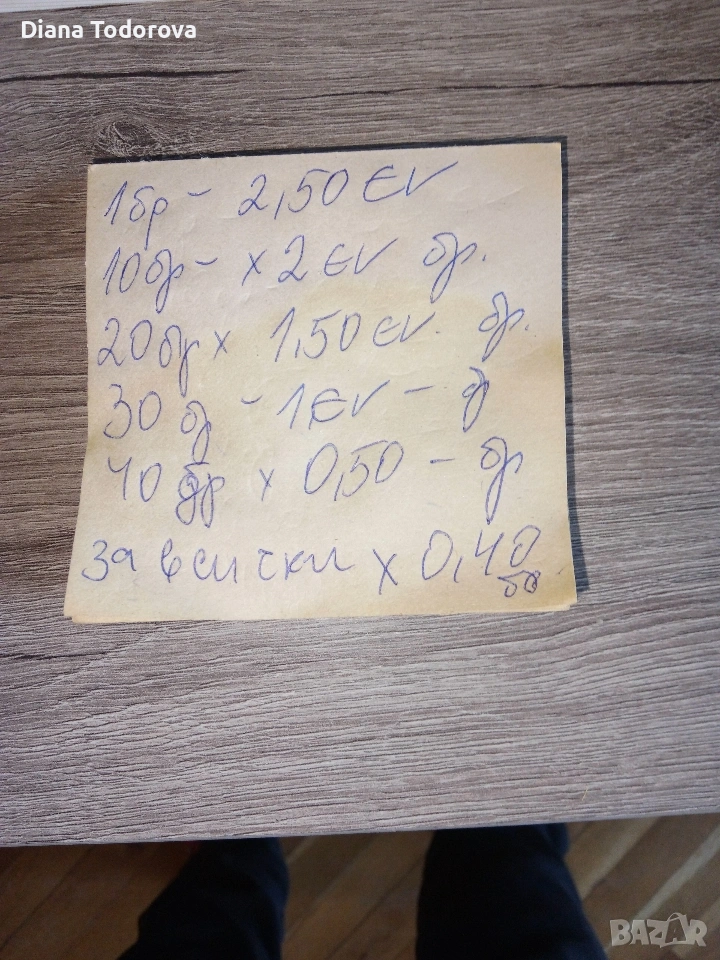 Diana Todorova
1бр - 2,50 EV
10бр - x 2 EV бр.
20бр x 1,50 EV. бр.
30 бр - 1 EV - бр
40 бр x 0,50 - бр
за всички x 0,40
бр
BAZAR